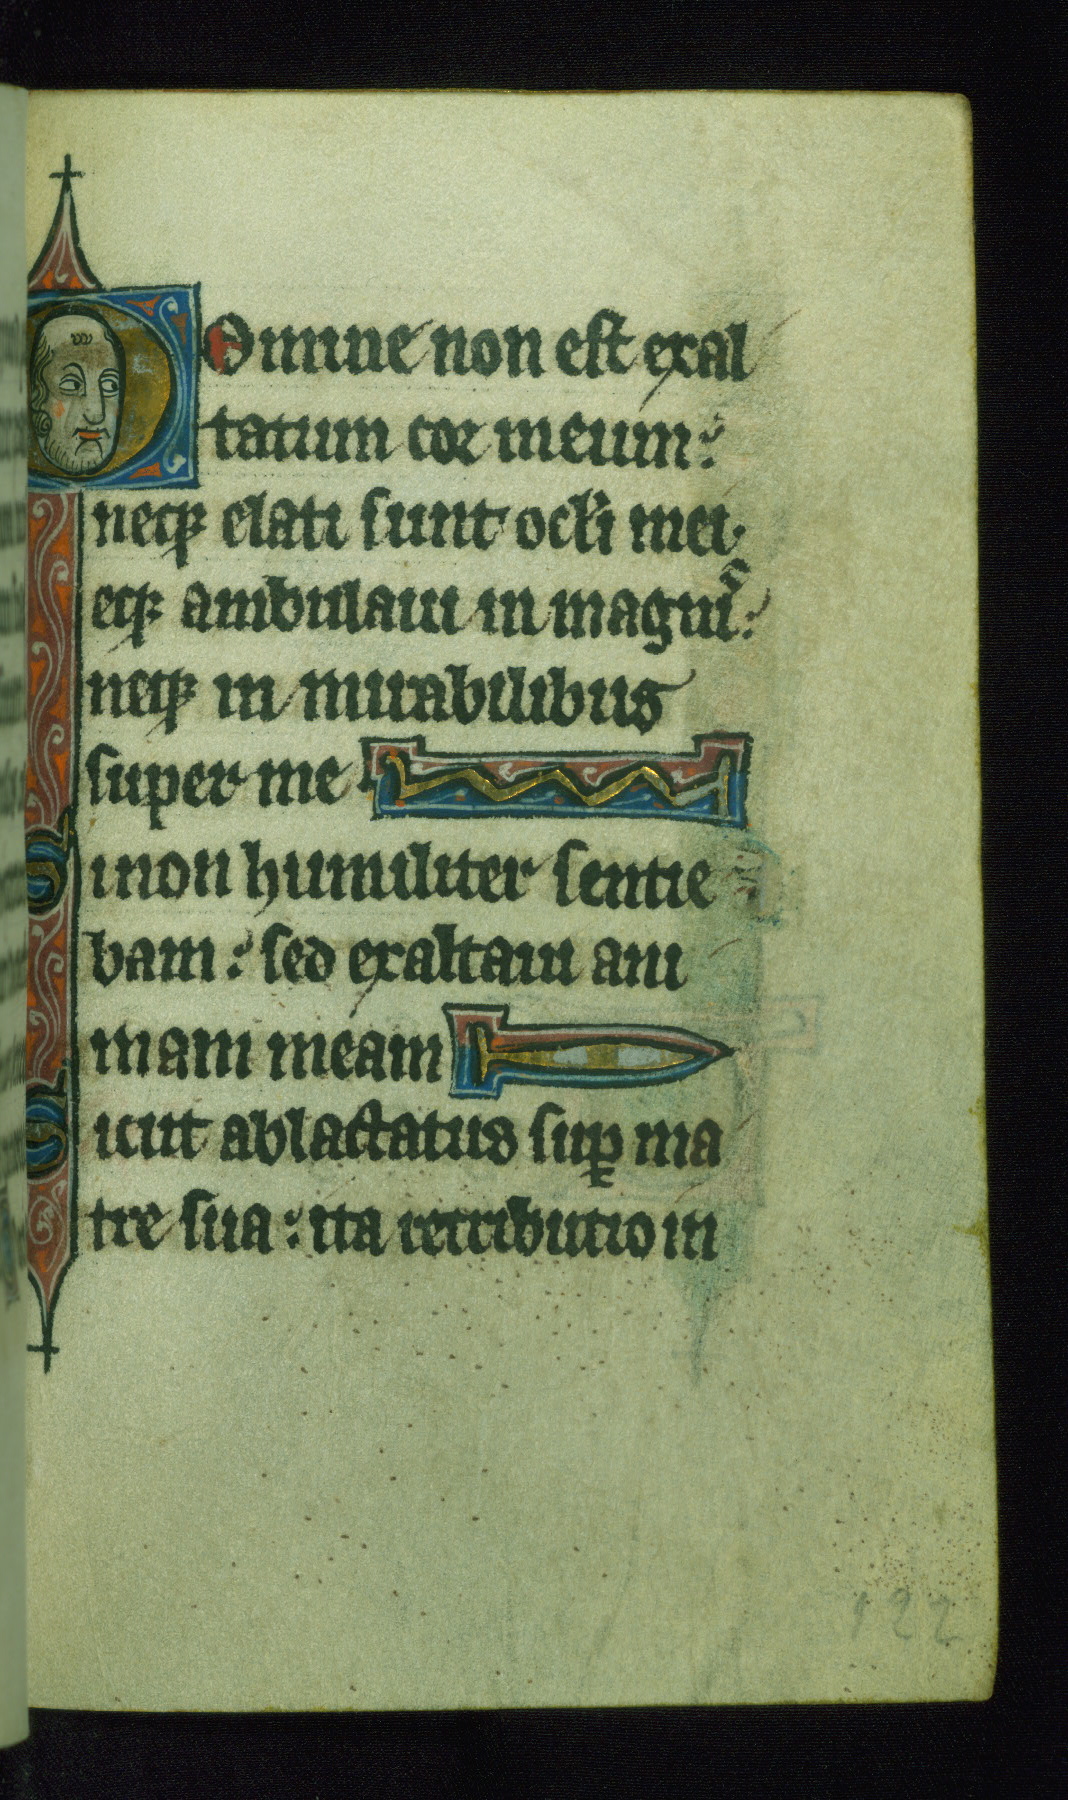 Domine non est exal
tatum cor meum:
neq; elati sunt oc̄li mei.
eq; ambulaui in magnıs̄:
neq; in mirabilibus
super me
Si non humiliter sentie
bam: sed exaltaui ani
mam meam
Sicut ablactatus suꝑ ma
tre sua: ita retributio in
122